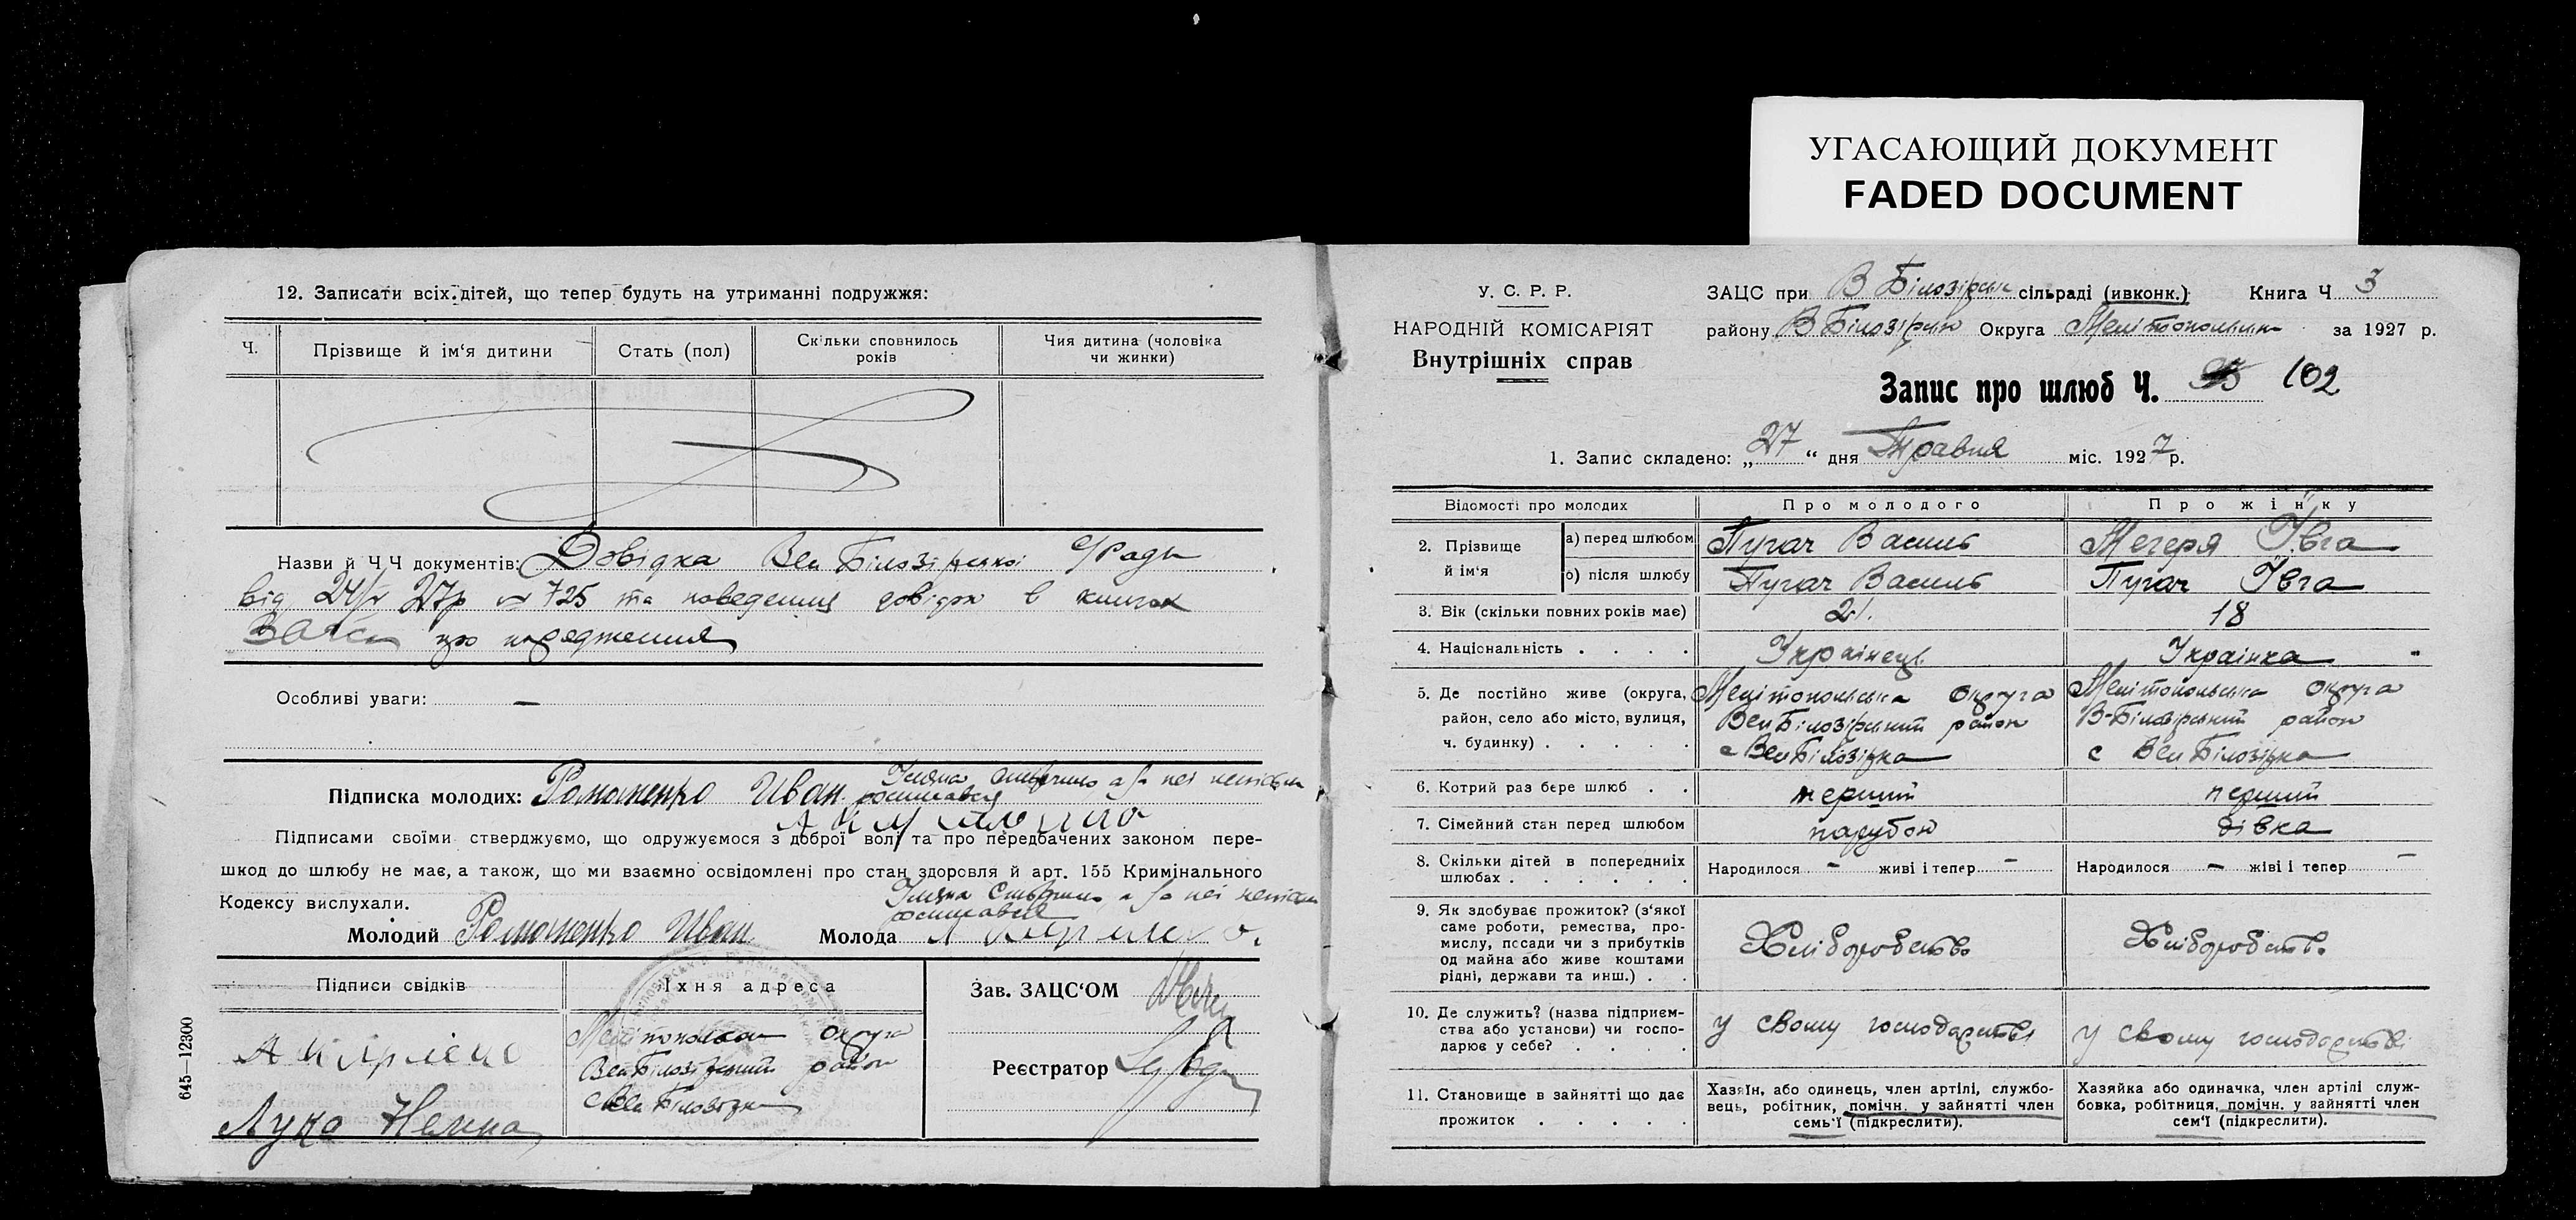 УГАСАЮЩИЙ ДОКУМЕНТ
FADED DOCUMENT
12. Записати всіх дітей, що тепер будуть на утриманні подружжя:
Ч.
Прізвище й ім‘я дитини
Стать (пол)
Скільки сповнилось
років
Чия дитина (чоловіка
чи жинки)
Назви й Ч Ч документів: Довідка Вел Білозірської С/Ради
від 24/V 27р № 725 та наведення довідок в книгах
ЗАГСу про народження
Особливі уваги: —
Підписка молодих: Романенко Иван Уляна а за неї
росписався
Підписами своїми стверджуємо, що одружуємося з доброї волі та про передбачених законом пере-
шкод до шлюбу не має, а також, що ми взаємно освідомлені про стан здоровля й арт. 155 Кримінального
Кодексу вислухали.
Уляна а за неї
росписався
Молодий Романенко Иван Молода
Підписи свідків
Їхня адреса
Мелітопольська округа
Вел Білозірський район
с Вел Білозірка
Лука
Зав. ЗАЦС‘ОМ
Реєстратор
645—12300
У. С. Р. Р.
НАРОДНІЙ КОМІСАРІЯТ
Внутрішніх справ
ЗАЦС при В Білозірськ сільраді (ивконк.) Книга Ч 3
району В Білозірськ Округа Мелітопольськ за 1927 р.
Запис про шлюб Ч. 102
1. Запис складено: „27“ дня Травня міс. 1927 р.
Відомості про молодих
Про молодого
Про жінку
2. Прізвище
й ім‘я
а) перед шлюбом
Пугач Василь
Мегеря Ївга
о) після шлюбу
Пугач Василь
Пугач Ївга
3. Вік (скільки повних років має)
21.
18
4. Національність . . . .
Українець
Українка
5. Де постійно живе (округа,
район, село або місто, вулиця,
ч. будинку) . . . . .
Мелітопольська округа
Вел Білозірський район
с Вел Білозірка
Мелітопольська округа
В-Білозірський район
с Вел Білозірка
6. Котрий раз бере шлюб . .
перший
перший
7. Сімейний стан перед шлюбом
парубок
дівка
8. Скільки дітей в попередниіх
шлюбах . . . . . .
Народилося - живі і тепер -
Народилося - жіві і тепер -
9. Як здобуває прожиток? (з‘якої
саме роботи, ремества, про-
мислу, посади чи з прибутків
од майна або живе коштами
рідні, держави та инш.) . .
Хліборобство
Хліборобство
10. Де служить? (назва підприєм-
ства або установи) чи госпо-
дарює у себе? . . . .
у свому господарстві
у свому господарстві
11. Становище в зайнятті що дає
прожиток . . . . .
Хазяїн, або одинець, член артілі, службо-
вець, робітник, помічн. у зайнятті член
семь‘ї (підкреслити).
Хазяйка або одиначка, член артілі служ-
бовка, робітниця, помічн. у зайнятті член
сем‘ї (підкреслити).